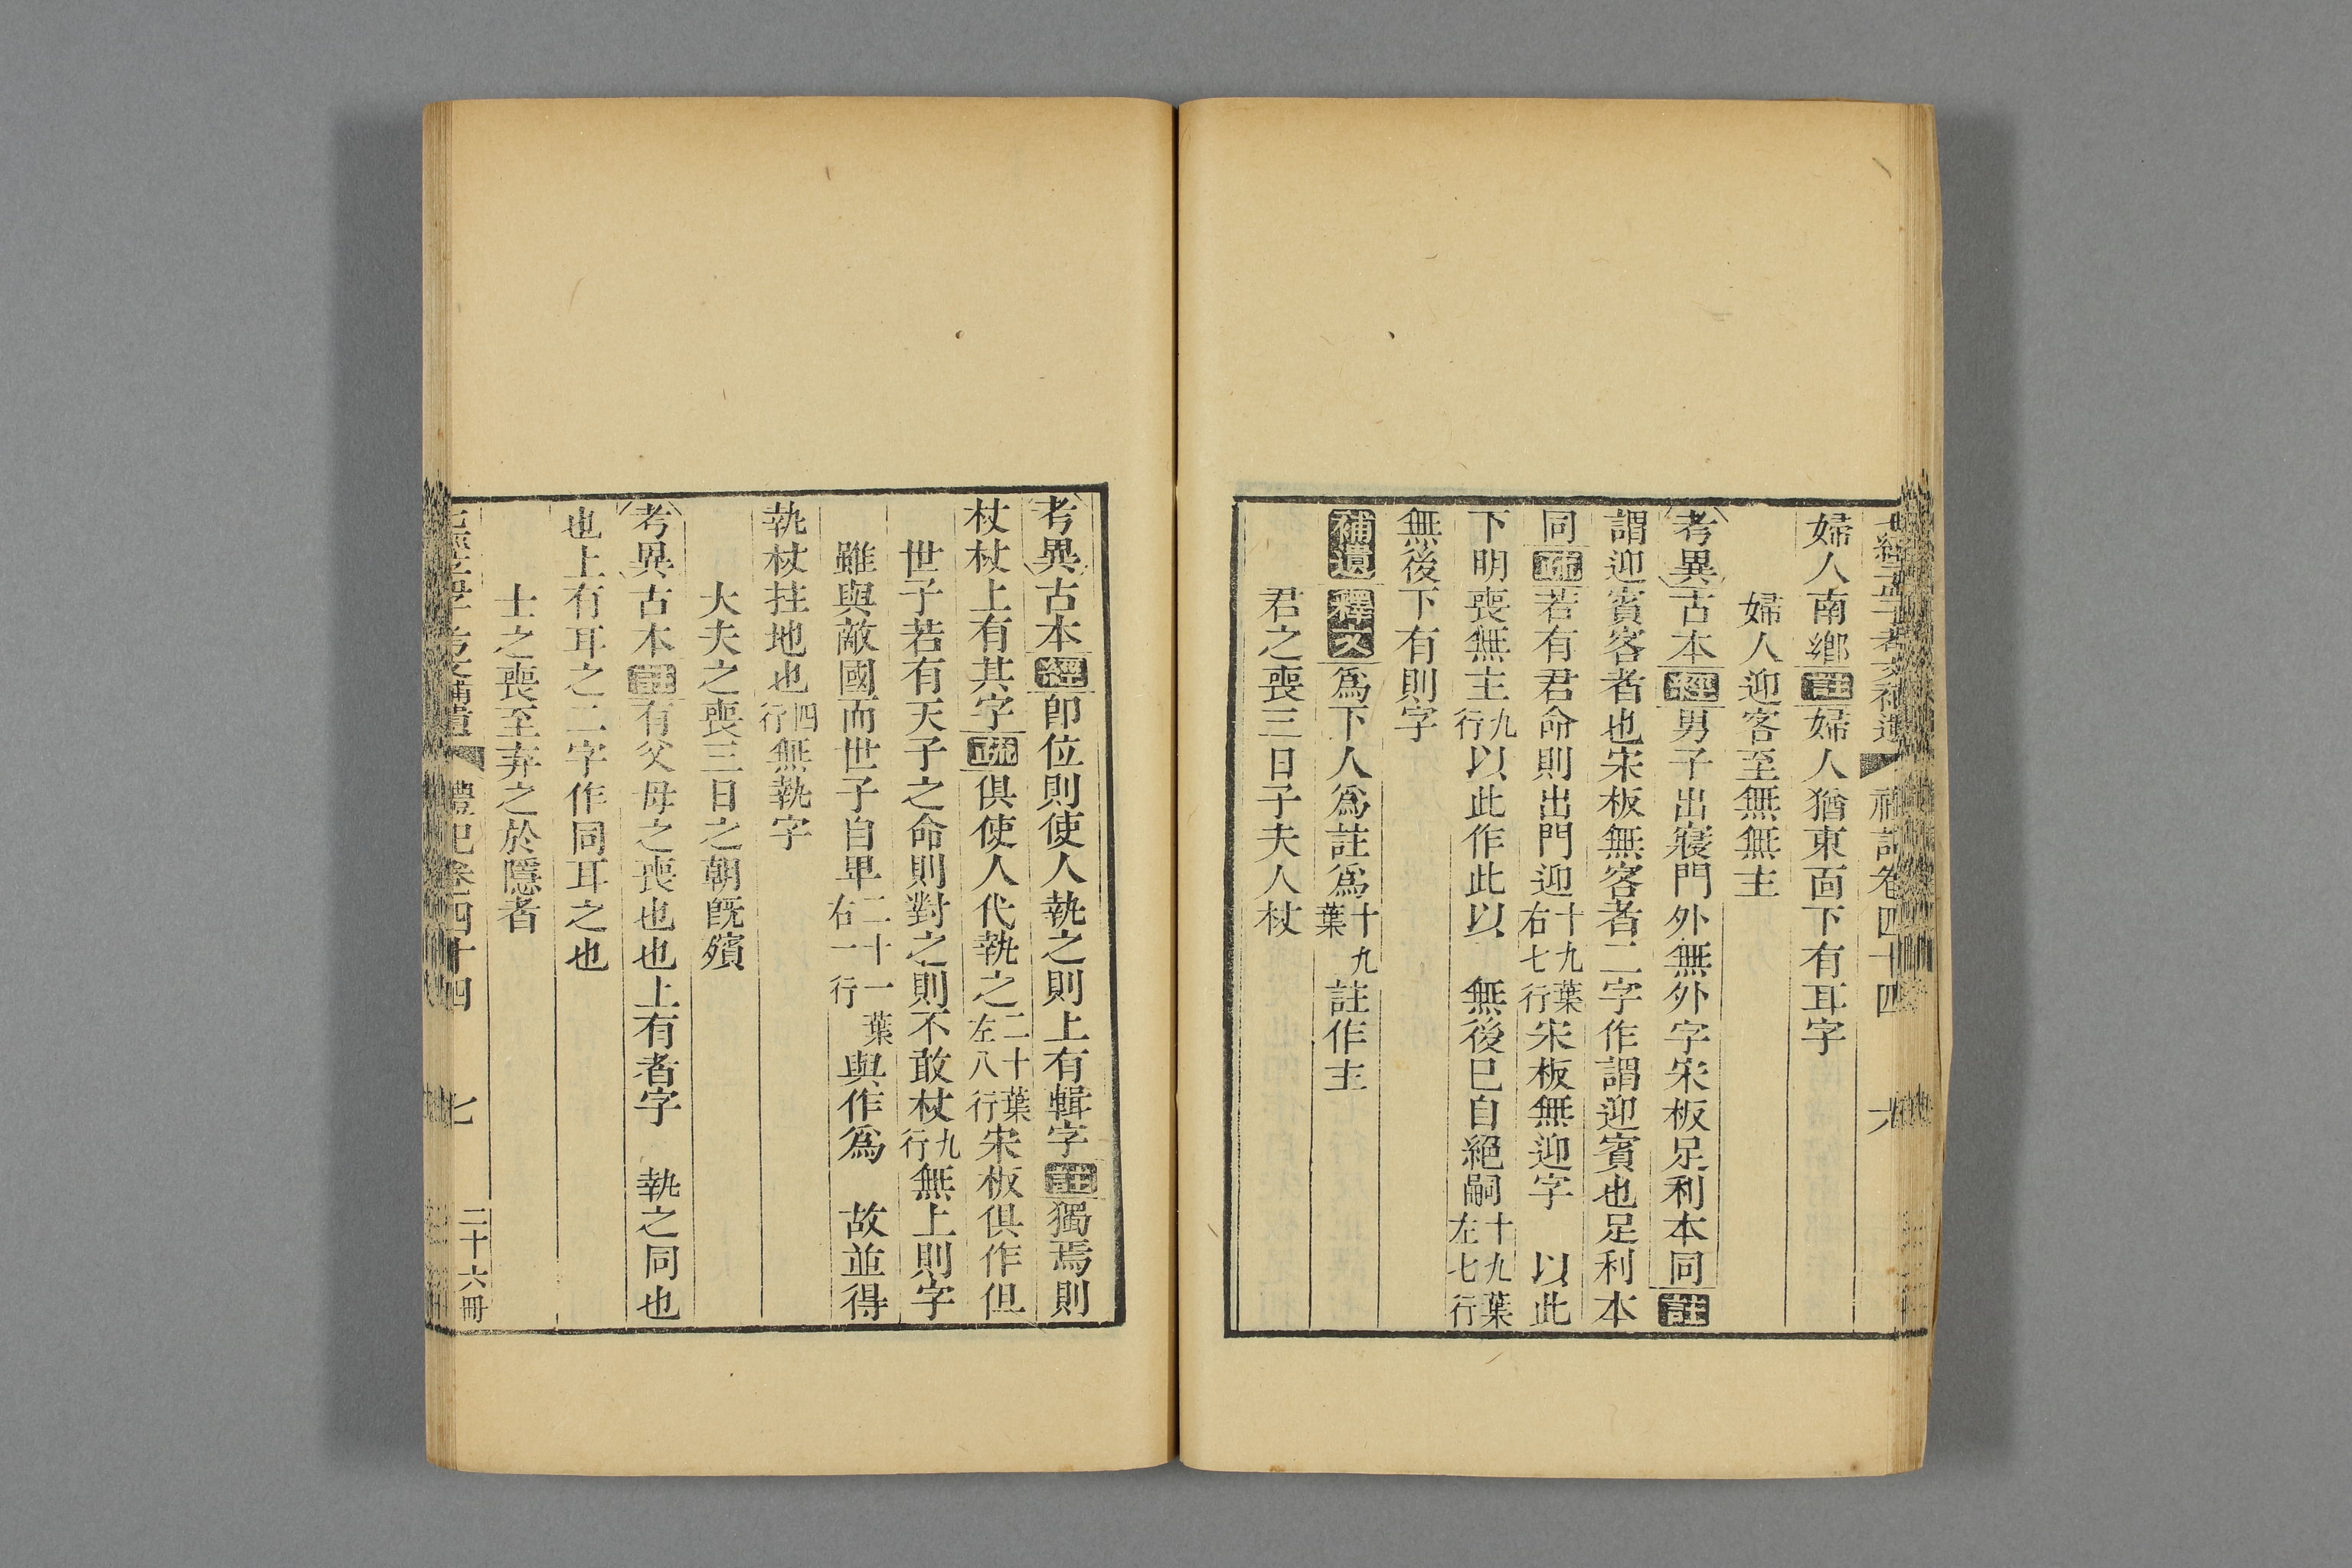 七經孟子考文補遺 禮記卷四十四 六
婦人南鄉註婦人猶東面下有耳字
婦人迎客至無無主
考異古本經男子出寢門外無外字宋板足利本同註
謂迎賓客者也宋板無客者二字作謂迎賓也足利本
同疏若有君命則出門迎十九葉右七行宋板無迎字 以此
下明喪無主九行以此作此以 無後已自絕嗣十九葉左七行
無後下有則字
補遺釋文爲下人爲註爲十九葉註作主
君之喪三日子夫人杖
考異古本經卽位則使人執之則上有輯字註獨焉則
杖杖上有其字疏俱使人代執之二十葉左八行宋板俱作但
世子若有天子之命則對之則不敢杖九行無上則字
雖與敵國而世子自卑二十一葉右一行與作爲 故並得
執杖拄地也四行無執字
大夫之喪三日之朝旣殯
考異古本註有父母之喪也也上有者字 執之同也
也上有耳之二字作同耳之也
士之喪至弃之於隱者
七經孟子考文補遺 禮記卷四十四 七 二十六冊